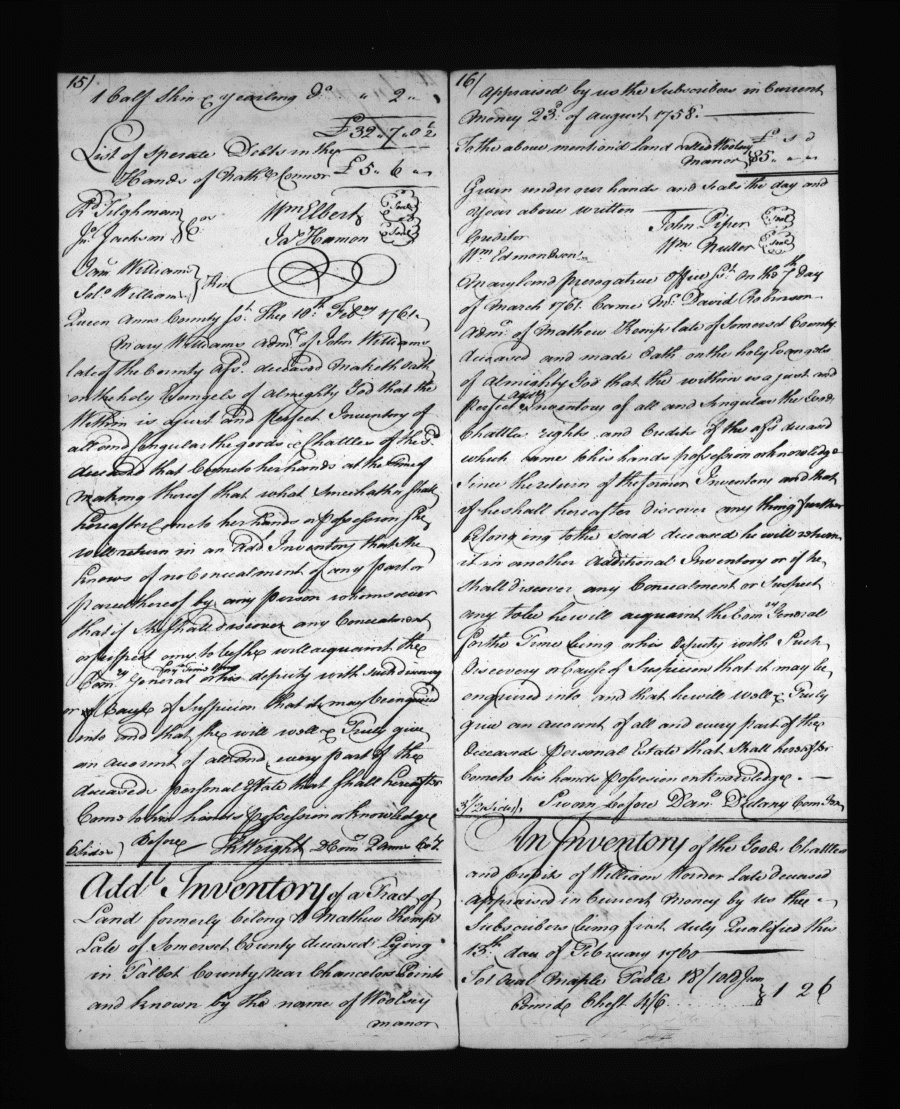 15/
1 Calf Skin & yearling Do " 2 "
£32.. 7.. 0 ½
List of Sperate Debts in the
Hands of Nath. Connor £5.. 6 "
Rd. Tilghman
Jno. Jackson } Crs
Wm Elbert Seal
Jas Hamon Seal
Danl. William
Solo. William } Kin
Queen Anns County Sst. The 10th Febry 1761.
Mary Williams admx. of John Williams
late of the County afsd. deceased maketh oath
on the holy Evangels of Almighty God that the
Within is a just and perfect Inventory of
all and singular the goods & Chattles of the sd.
deceased that Come to her hands at the time of
making thereof that what hath or Shall
hereafter come to her hands or possession She
will return in an add Inventory that she
knows of no Concealment of any part or
parcel thereof by any person whomsoever
that if She shall discover any Concealment
or suspect any to be she will acquaint the
Comry General for the Time being or his deputy with such discovery
or Cause of Suspicion that it may be enquired
into and that she will well & Truly give
an account of all and every part of the
deceaseds personal Estate that Shall hereafter
Come to her hands possession or knowledge
6 Sides) Before Wright Dcomy. Q anns Coty
Addl. Inventory of a Tract of
Land formerly belong to Mathew Kemp
Late of Somerset County deceased Lying
in Talbot County near Chancelors Point
and known by the name of Woolsey
manor
16/
Appraised by us the Subscribers in Current
money 23d. of august 1758.
To the above mentiond land called Woolsey
Manor } £ s d
85 " "
Given under our hands and Seals the day and
Year above written
John Piper Seal
Creditor
Wm Nutter Seal
Wm Edmondson
Maryland prerogative Office Sst. on the 7th day
of March 1761. Came Mr. David Robinson
Admr. of Mathew Kemp late of Somerset County
deceased and made Oath on the holy Evangels
of Almighty God that the within is a just and
perfect addl Inventory of all and Singular the Goods
Chattles rights and Credits of the afsd deceased
which came to his hands possession or knowledge
Since the return of the former Inventory and that
if he shall hereafter discover any thing further
belonging to the said deceased he will return
it in another additional Inventory or if he
Shall discover any Concealment or Suspect
any to be he will acquaint the Comry General
for the Time being or his deputy with Such
discovery or Cause of Suspicion that it may be
enquired into and that he will well & Truly
give an account of all and every part of the
deceaseds personal Estate that Shall hereafter
Come to his hands possession or knowledge.
3/2 Sides), Sworn before Danl. Dulany Com Gen
An Inventory of the Goods Chattles
and Credits of William Late deceased
appraised in Current Money by us the
Subscribers being first duly Qualified this
13th day of February 1760
To 1 Oval Maple Table 18/ 1 Old
Chest 4/6 } 1 2 6